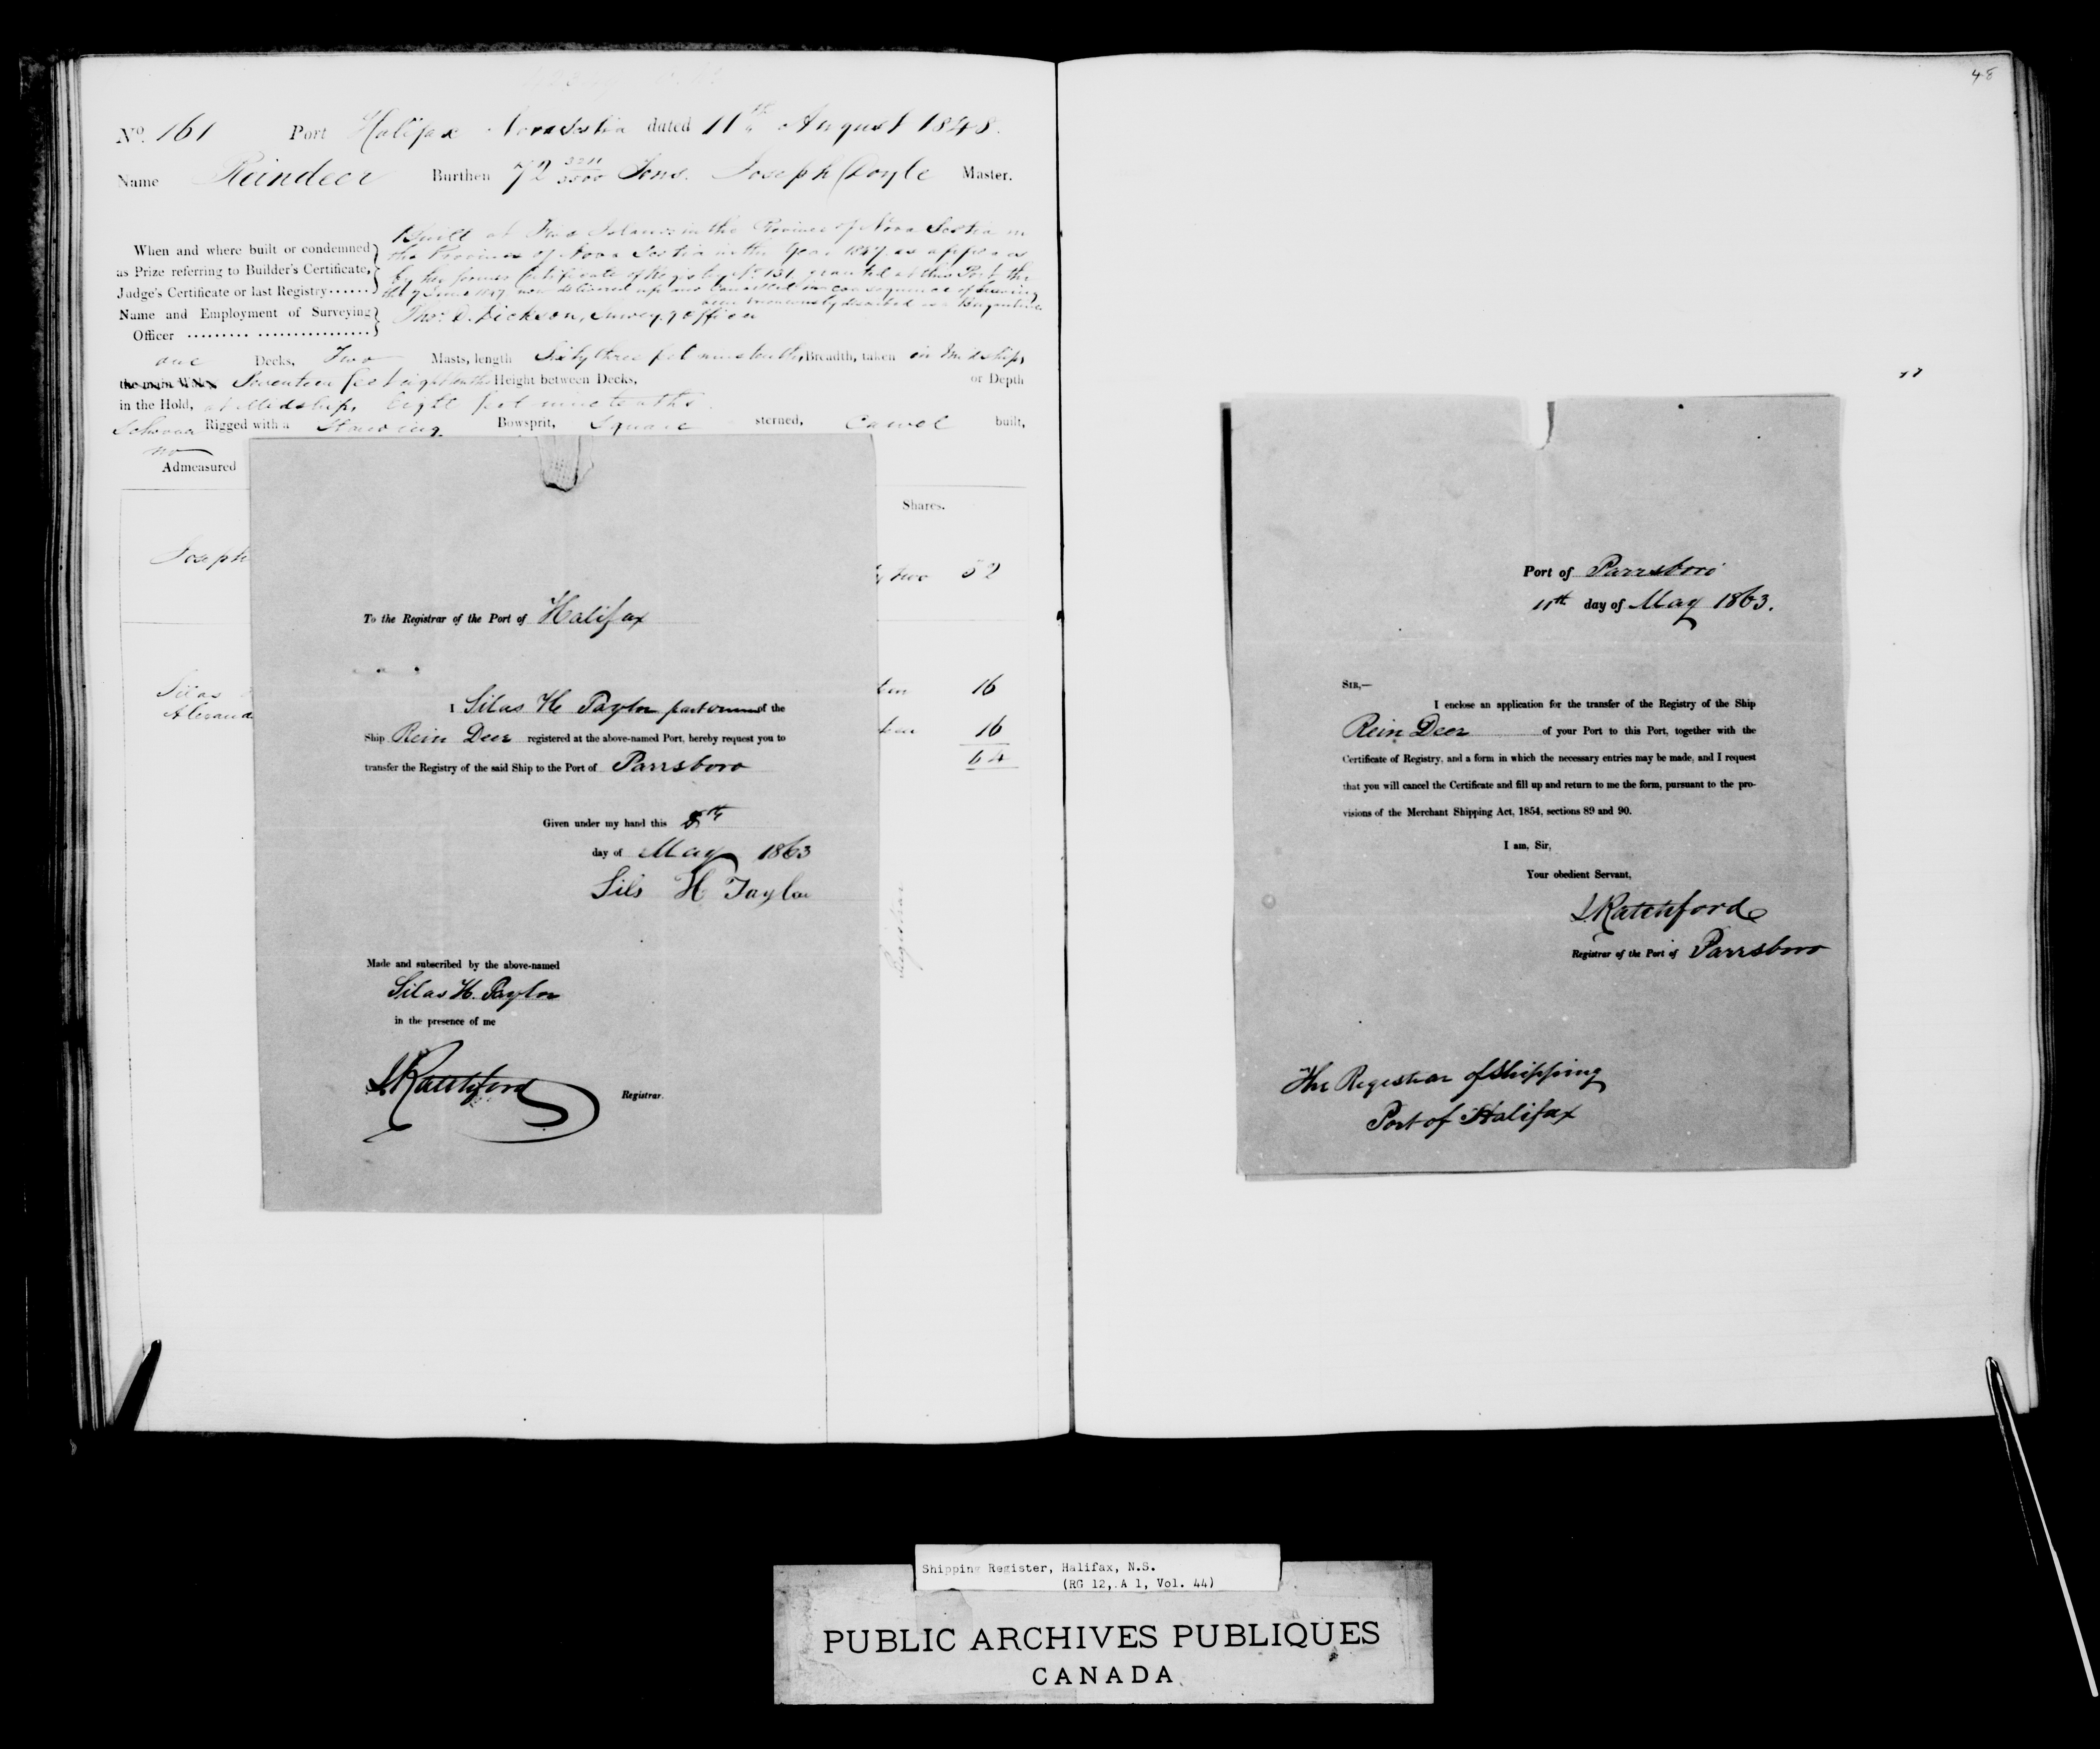 No. 161 Port Halifax Nova Scotia dated 11th August 1848.
Name Reindeer Burthen 72 Tons. Joseph Doyle Master.
When and where built or condemned
as Prize referring to Builder's Certificate,
Judge's Certificate or last Registry
Name and Employment of Surveying
Officer
Built at in the Province of Nova Scotia in
the Province of Nova Scotia in the Year 1847 as appears
by her former Certificate of Registry No. 131 granted at this Port the
the 7 June 1847 now delivered up and Cancelled in consequence of having
been erroneously described as a Brigantine
Thos. D. Dickson, Surveyg Officer
one Decks, Two Masts, length Sixty three feet nine tenths, Breadth, taken in Midships
the main Wales Seventeen feet eight tenths Height between Decks, or Depth
in the Hold, at Midships Eight feet nine tenths.
Schooner Rigged with a Standing Bowsprit, Square sterned, Carvel built,
no
Admeasured
Shares.
Joseph
two 52
Silas
16
Alexand
16
64
Registrar
To the Registrar of the Port of Halifax
I Silas H Taylor part owner of the
Ship Rein Deer registered at the above-named Port, hereby request you to
transfer the Registry of the said Ship to the Port of Parrsboro
Given under my hand this 8th
day of May 1863
Sils H Taylor
Made and subscribed by the above-named
Silas H. Taylor
in the presence of me
Ratchford
Registrar.
48
Port of Parrsboro
11th day of May 1863.
SIR,—
I enclose an application for the transfer of the Registry of the Ship
Rein Deer of your Port to this Port, together with the
Certificate of Registry, and a form in which the necessary entries may be made, and I request
that you will cancel the Certificate and fill up and return to me the form, pursuant to the pro-
visions of the Merchant Shipping Act, 1854, sections 89 and 90.
I am, Sir,
Your obedient Servant,
Ratchford
Registrar of the Port of Parrsboro
The Registrar of Shipping
Port of Halifax
Shipping Register, Halifax, N.S.
(RG 12, A 1, Vol. 44)
PUBLIC ARCHIVES PUBLIQUES
CANADA